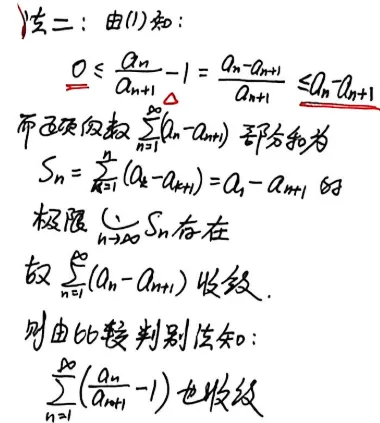 法二：由(1)知：
0 ≤ a_n/a_{n+1} - 1 = (a_n - a_{n+1})/a_{n+1} ≤ a_n - a_{n+1}
而正项级数 ∑_{n=1}^{∞}(a_n - a_{n+1}) 部分和为
S_n = ∑_{k=1}^{n}(a_k - a_{k+1}) = a_1 - a_{n+1} 的
极限 lim_{n→∞} S_n 存在
故 ∑_{n=1}^{∞}(a_n - a_{n+1}) 收敛.
则由比较判别法知：
∑_{n=1}^{∞}(a_n/a_{n+1} - 1) 也收敛